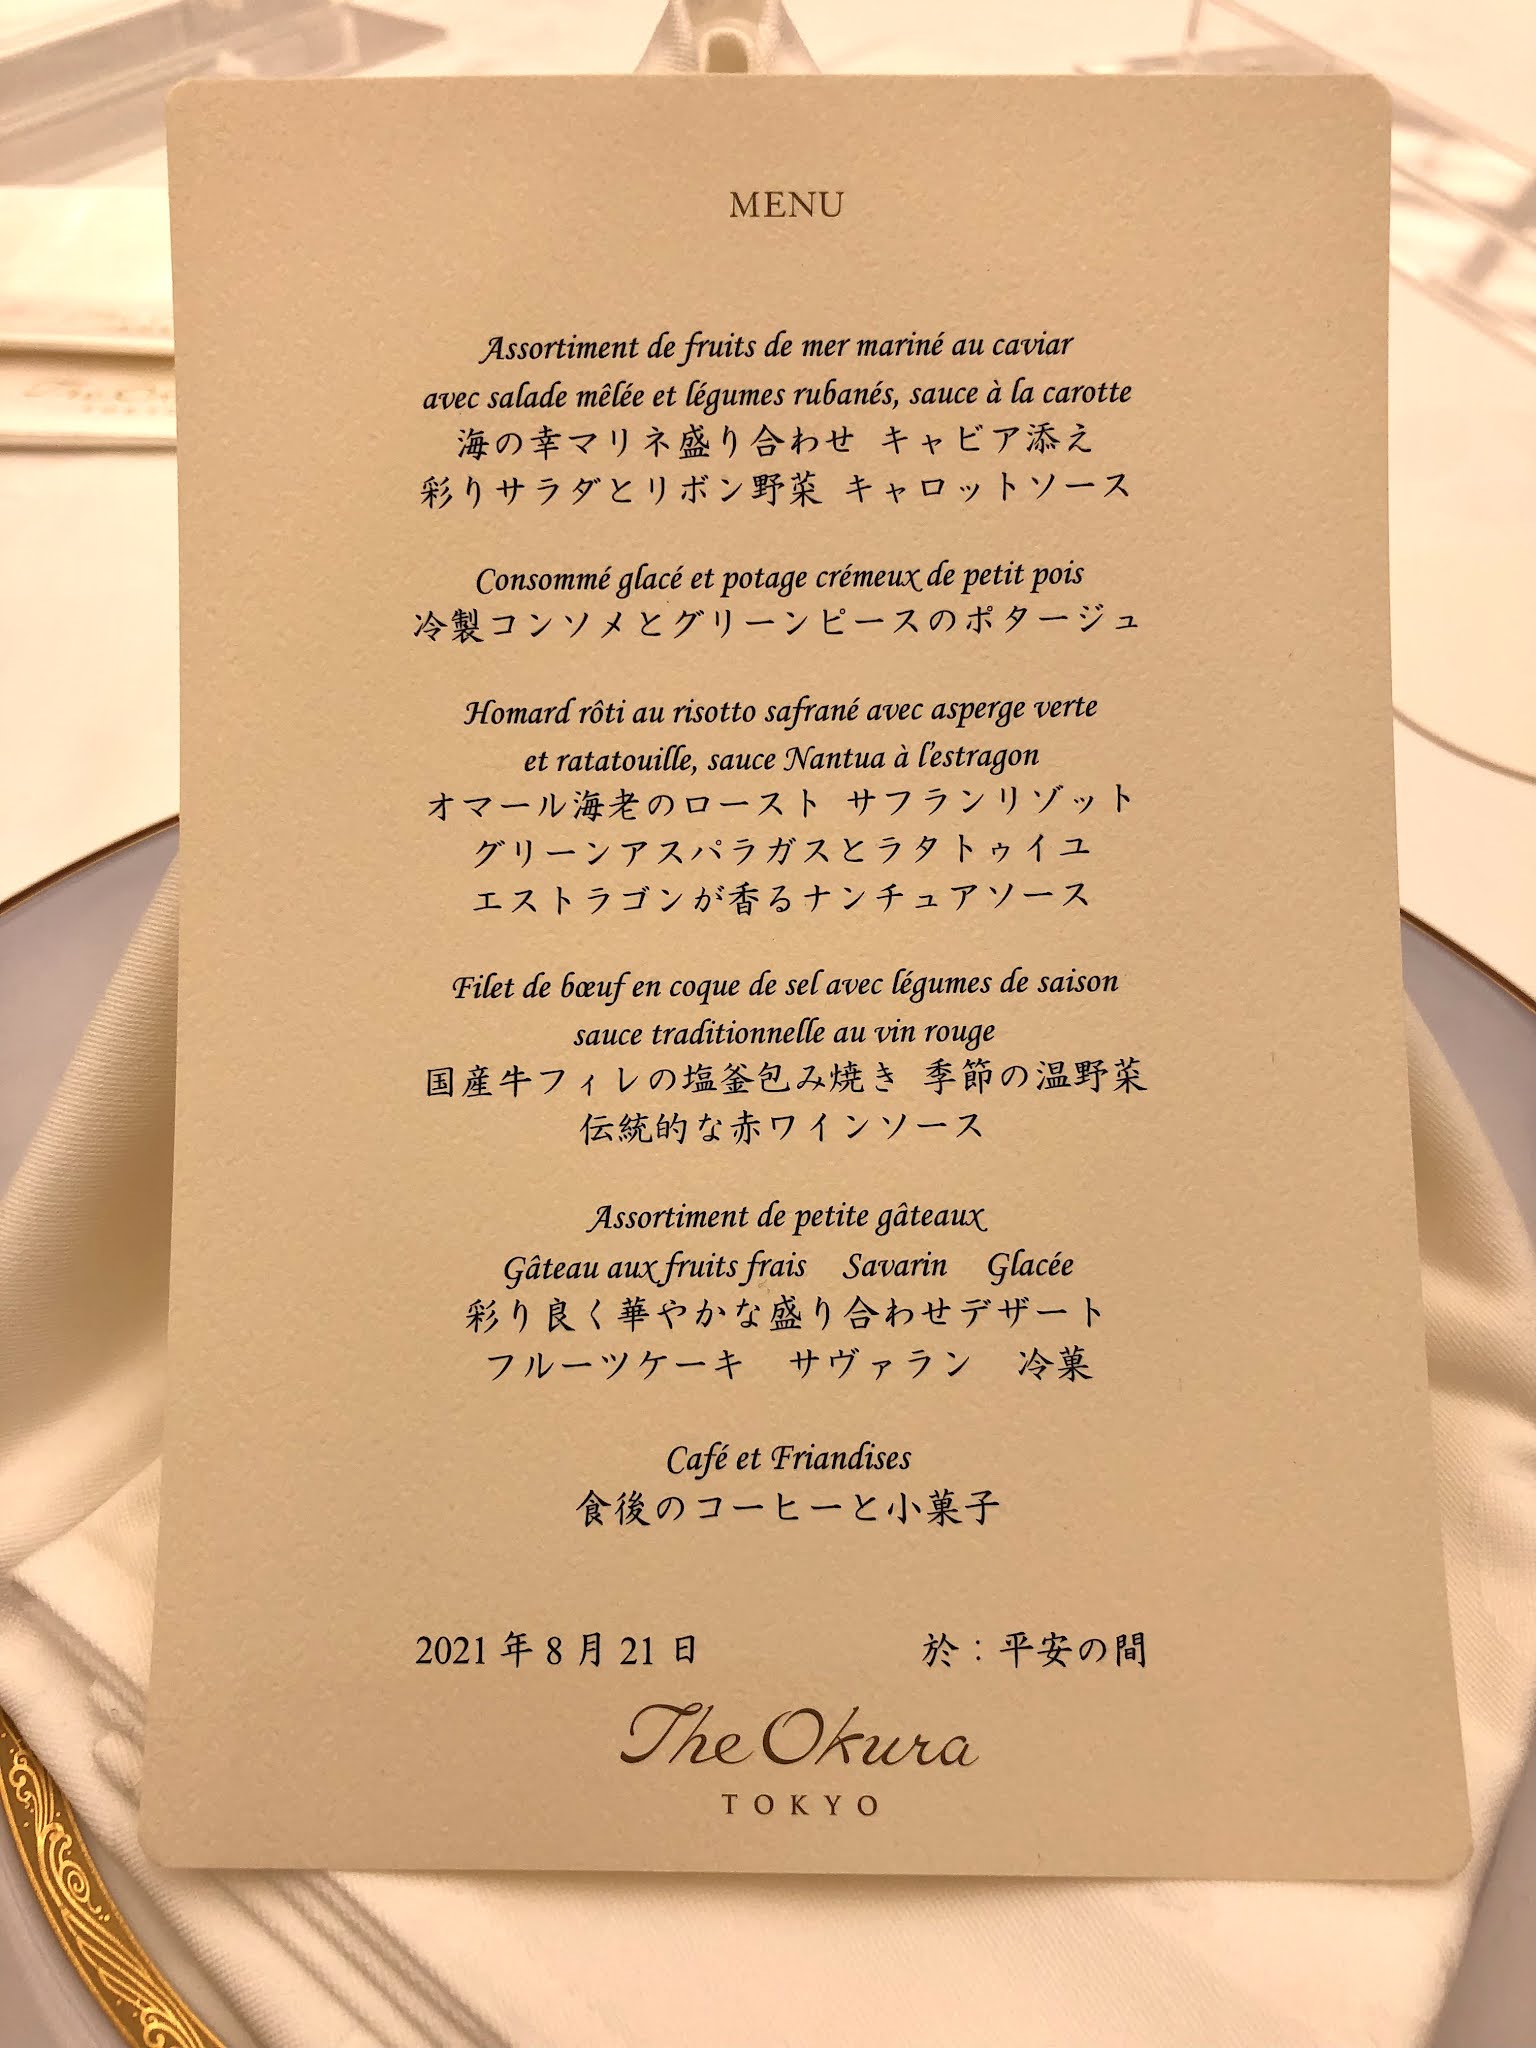 MENU
Assortiment de fruits de mer mariné au caviar
avec salade mêlée et légumes rubanés, sauce à la carotte
海の幸マリネ盛り合わせ キャビア添え
彩りサラダとリボン野菜 キャロットソース
Consommé glacé et potage crémeux de petit pois
冷製コンソメとグリーンピースのポタージュ
Homard rôti au risotto safrané avec asperge verte
et ratatouille, sauce Nantua à l'estragon
オマール海老のロースト サフランリゾット
グリーンアスパラガスとラタトゥイユ
エストラゴンが香るナンチュアソース
Filet de bœuf en coque de sel avec légumes de saison
sauce traditionnelle au vin rouge
国産牛フィレの塩釜包み焼き 季節の温野菜
伝統的な赤ワインソース
Assortiment de petite gâteaux
Gâteau aux fruits frais Savarin Glacée
彩り良く華やかな盛り合わせデザート
フルーツケーキ サヴァラン 冷菓
Café et Friandises
食後のコーヒーと小菓子
2021年8月21日 於：平安の間
The Okura
TOKYO